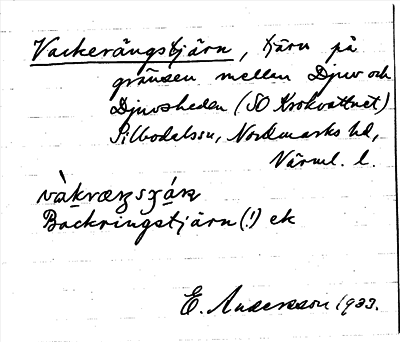 Vackerängstjärn, tjärn på
gränsen mellan Djuv och
Djuvsheden (SO Krokvattnet)
Silbodals sn, Nordmarks hd,
Värml. l.
Backringstjärn (!) ek
E. Andersson 1933.